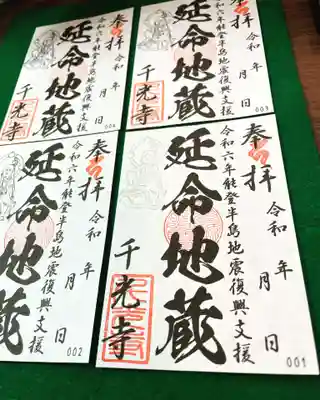 奉拝
令和六年能登半島地震復興支援
延命地蔵
令和 年 月 日
千光寺
004
奉拝
令和六年能登半島地震復興支援
延命地蔵
令和 年 月 日
千光寺
003
奉拝
令和六年能登半島地震復興支援
延命地蔵
令和 年 月 日
002
奉拝
令和六年能登半島地震復興支援
延命地蔵
令和 年 月 日
千光寺
001